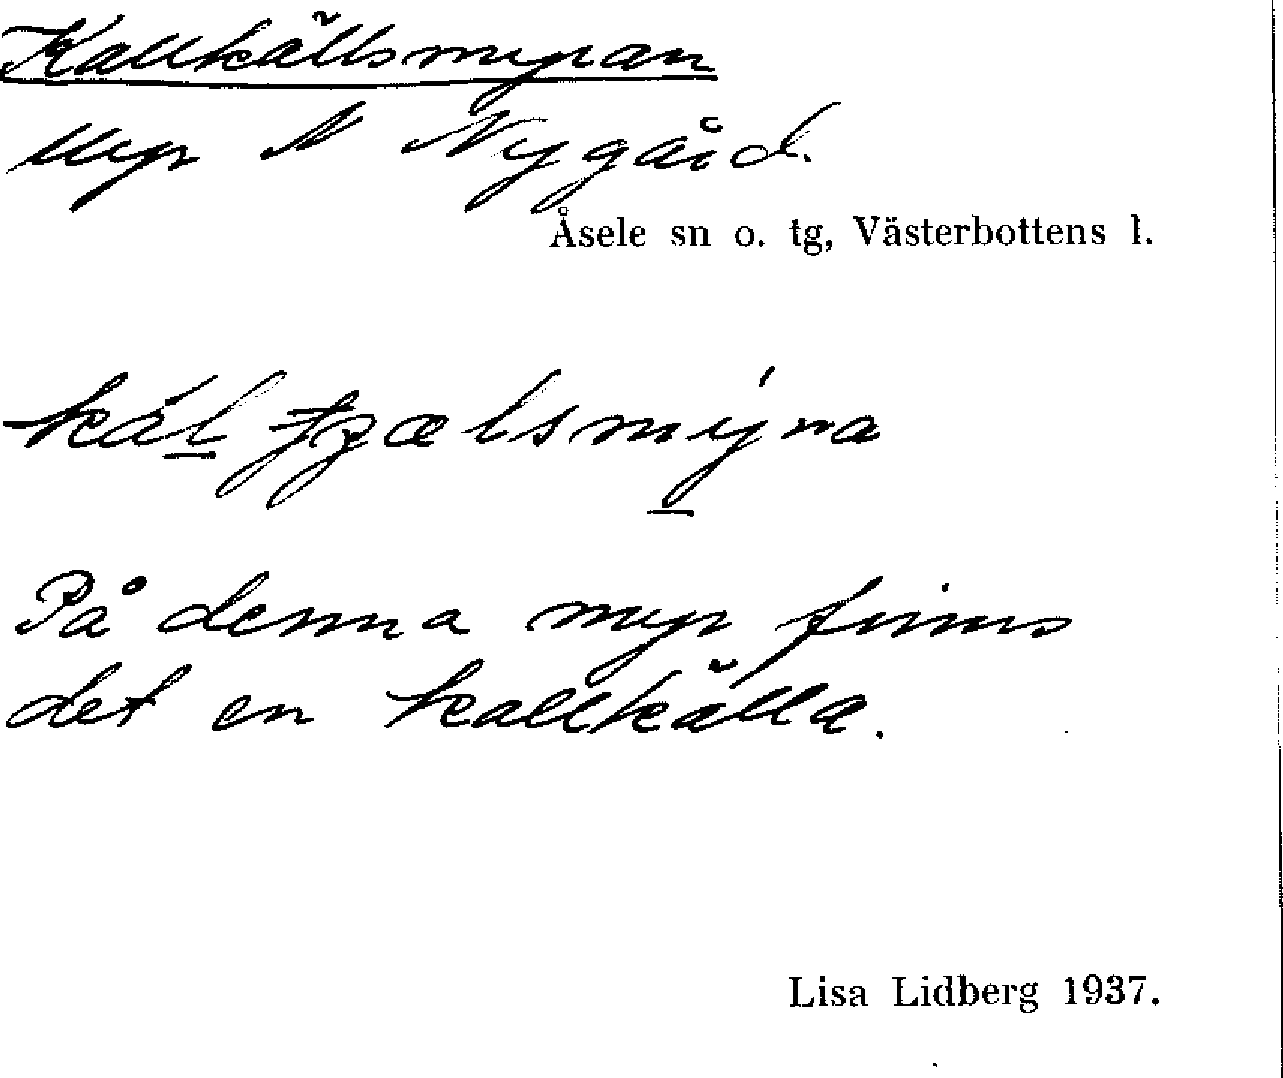 Kallkällsmyran
Myr N Nygård.
Åsele sn o. tg, Västerbottens l.
På denna myr finns
det en kallkälla.
Lisa Lidberg 1937.